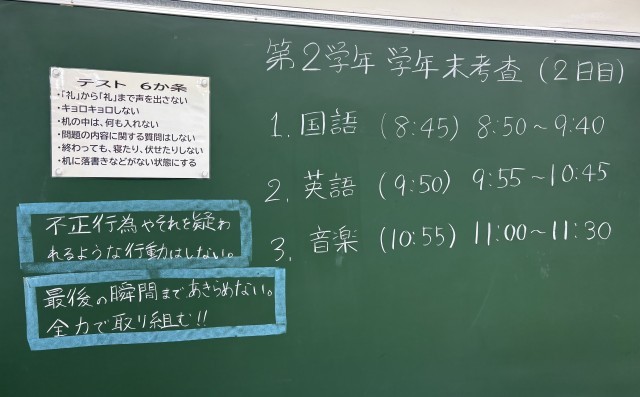 第2学年 学年末考査 (2日目)
1. 国語 (8:45) 8:50～9:40
2. 英語 (9:50) 9:55～10:45
3. 音楽 (10:55) 11:00～11:30
テスト 6か条
・「礼」から「礼」まで声を出さない
・キョロキョロしない
・机の中は、何も入れない
・問題の内容に関する質問はしない
・終わっても、寝たり、伏せたりしない
・机に落書きなどがない状態にする
不正行為やそれを疑わ
れるような行動はしない。
最後の瞬間まであきらめない。
全力で取り組む!!